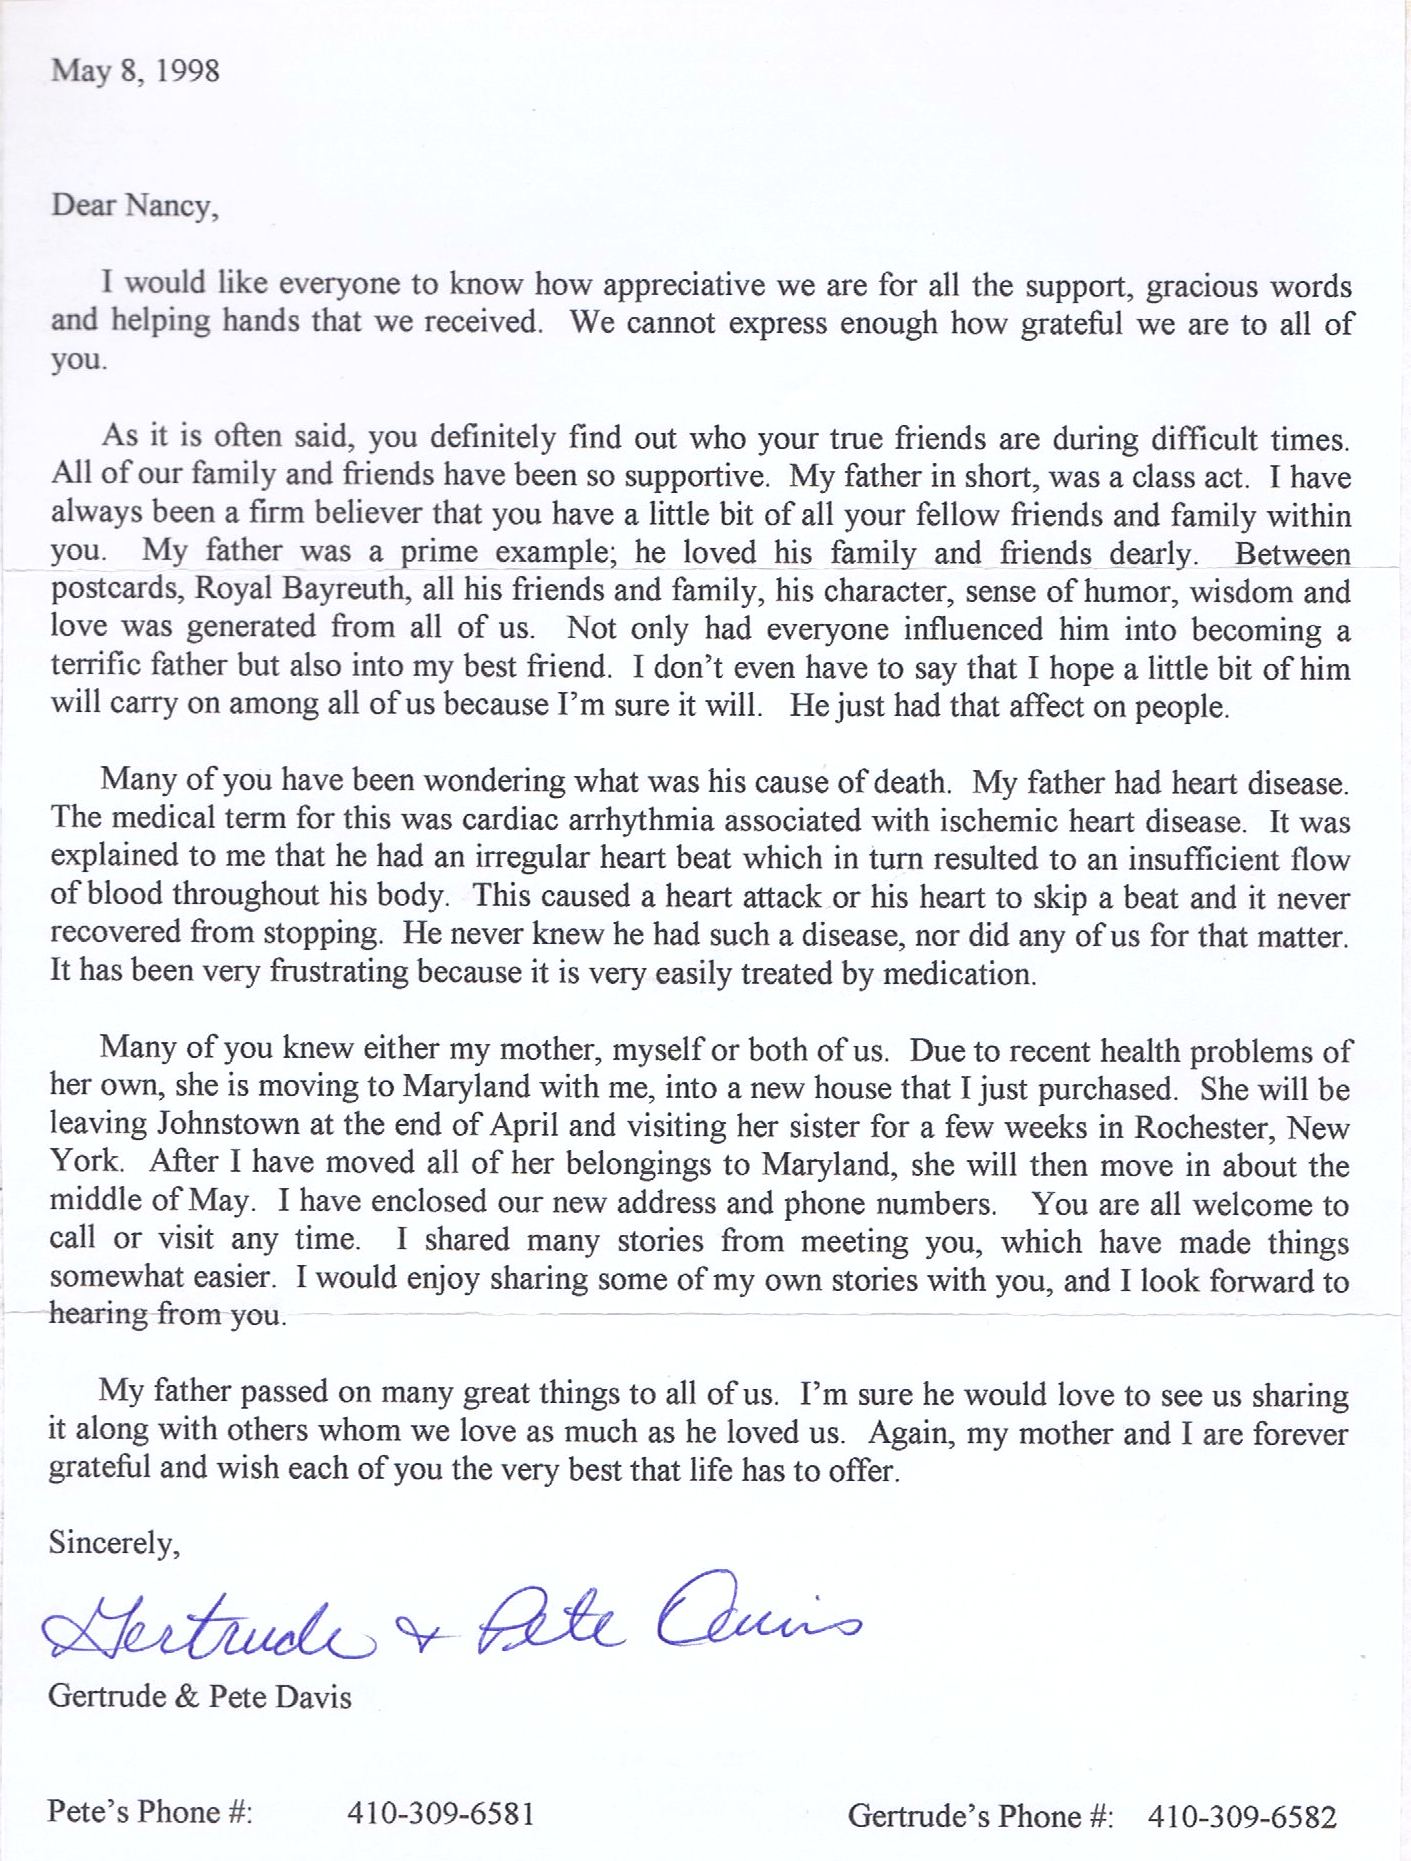 May 8, 1998
Dear Nancy,
I would like everyone to know how appreciative we are for all the support, gracious words
and helping hands that we received. We cannot express enough how grateful we are to all of
you.
As it is often said, you definitely find out who your true friends are during difficult times.
All of our family and friends have been so supportive. My father in short, was a class act. I have
always been a firm believer that you have a little bit of all your fellow friends and family within
you. My father was a prime example; he loved his family and friends dearly. Between
postcards, Royal Bayreuth, all his friends and family, his character, sense of humor, wisdom and
love was generated from all of us. Not only had everyone influenced him into becoming a
terrific father but also into my best friend. I don't even have to say that I hope a little bit of him
will carry on among all of us because I'm sure it will. He just had that affect on people.
Many of you have been wondering what was his cause of death. My father had heart disease.
The medical term for this was cardiac arrhythmia associated with ischemic heart disease. It was
explained to me that he had an irregular heart beat which in turn resulted to an insufficient flow
of blood throughout his body. This caused a heart attack or his heart to skip a beat and it never
recovered from stopping. He never knew he had such a disease, nor did any of us for that matter.
It has been very frustrating because it is very easily treated by medication.
Many of you knew either my mother, myself or both of us. Due to recent health problems of
her own, she is moving to Maryland with me, into a new house that I just purchased. She will be
leaving Johnstown at the end of April and visiting her sister for a few weeks in Rochester, New
York. After I have moved all of her belongings to Maryland, she will then move in about the
middle of May. I have enclosed our new address and phone numbers. You are all welcome to
call or visit any time. I shared many stories from meeting you, which have made things
somewhat easier. I would enjoy sharing some of my own stories with you, and I look forward to
hearing from you.
My father passed on many great things to all of us. I'm sure he would love to see us sharing
it along with others whom we love as much as he loved us. Again, my mother and I are forever
grateful and wish each of you the very best that life has to offer.
Sincerely,
Gertrude & Pete Davis
Gertrude & Pete Davis
Pete's Phone #: 410-309-6581 Gertrude's Phone #: 410-309-6582